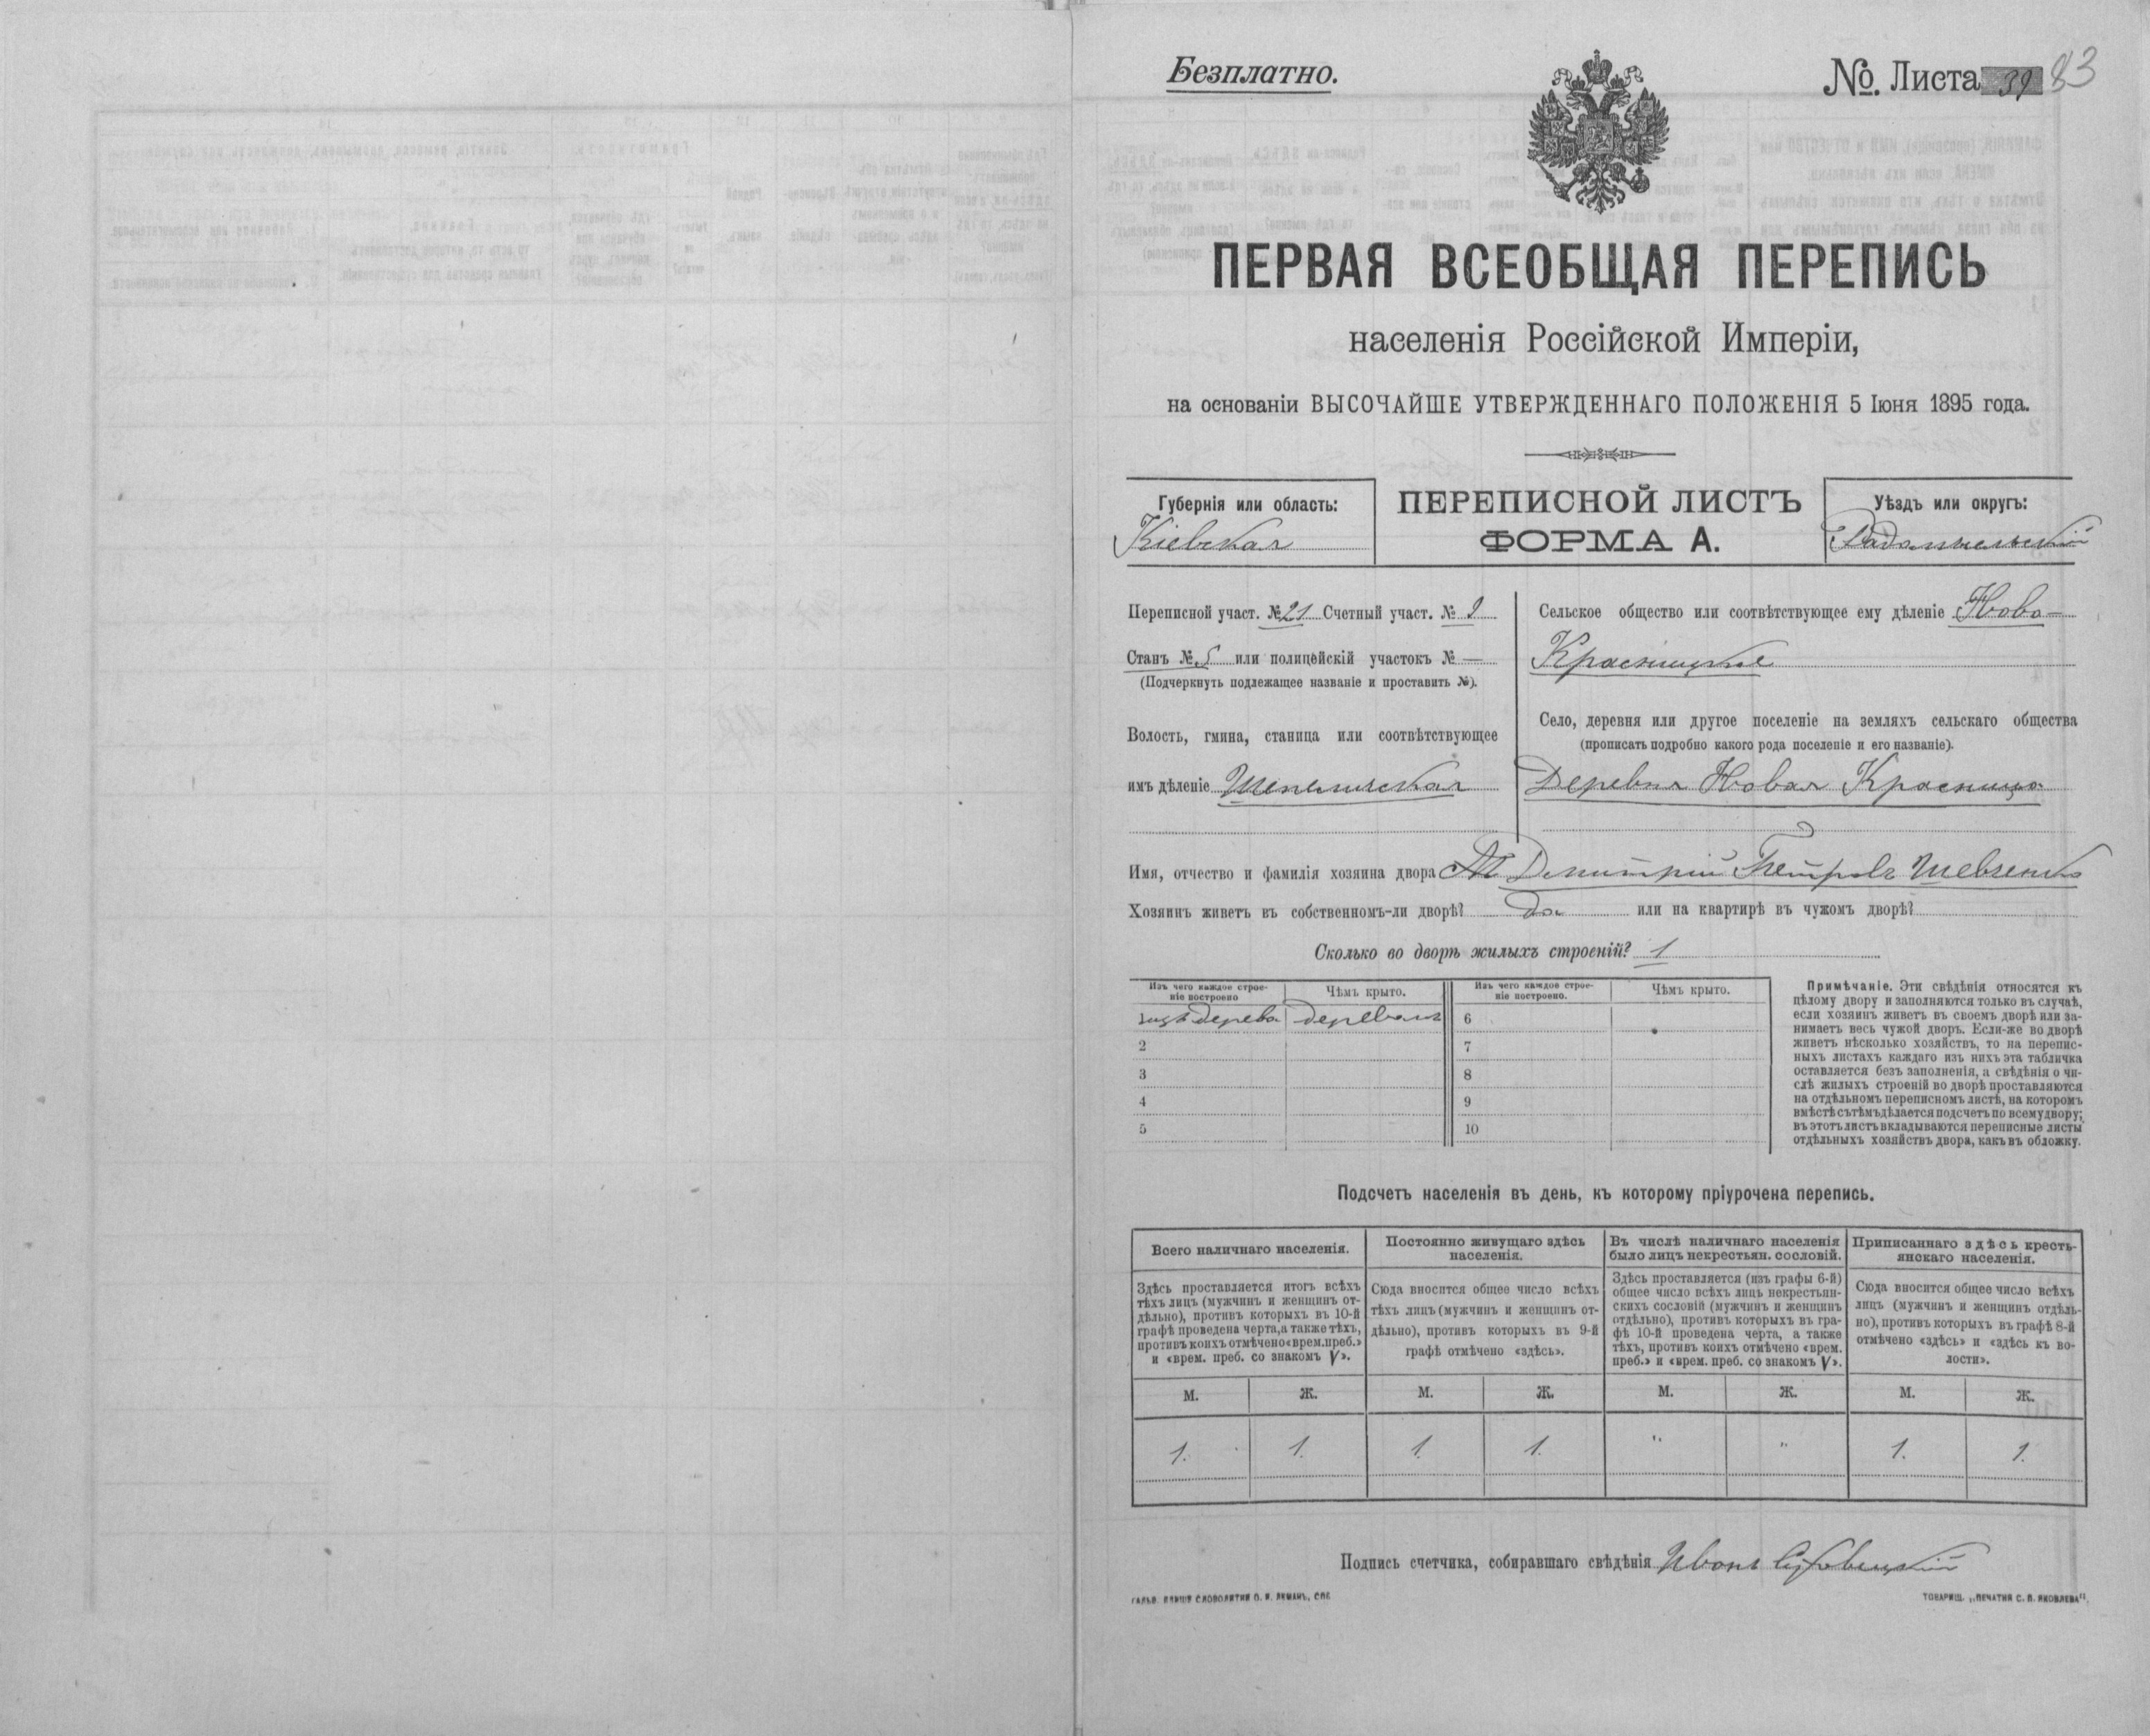 Безплатно.
№. Листа 39 83
ПЕРВАЯ ВСЕОБЩАЯ ПЕРЕПИСЬ
населенія Россійской Имперіи,
на основаніи ВЫСОЧАЙШЕ УТВЕРЖДЕННАГО ПОЛОЖЕНІЯ 5 Іюня 1895 года.
Губернія или область:
Кіевская
ПЕРЕПИСНОЙ ЛИСТЪ
ФОРМА А.
Уѣздъ или округъ:
Радомысльскій
Переписной участ. № 21 Счетный участ. № 2
Станъ № 5 или полицейскій участокъ № —
(Подчеркнуть подлежащее названіе и проставить №).
Волость, гмина, станица или соотвѣтствующее
имъ дѣленіе Шепеличская
Сельское общество или соотвѣтствующее ему дѣленіе Ново-
Красницкое
Село, деревня или другое поселеніе на земляхъ сельскаго общества
(прописать подробно какого рода поселеніе и его названіе).
Деревня Новая Красница
Имя, отчество и фамилія хозяина двора Дмитрій Петровъ Шевченко
Хозяинъ живетъ въ собственномъ-ли дворѣ? Да или на квартирѣ въ чужомъ дворѣ?
Сколько во дворѣ жилыхъ строеній? 1
Изъ чего каждое строе-
ніе построено
Чѣмъ крыто.
Изъ чего каждое строе-
ніе построено.
Чѣмъ крыто.
1 изъ дерева деревомъ 6
2 7
3 8
4 9
5 10
Примѣчаніе. Эти свѣдѣнія относятся къ
цѣлому двору и заполняются только въ случаѣ,
если хозяинъ живетъ въ своемъ дворѣ или за-
нимаетъ весь чужой дворъ. Если-же во дворѣ
живетъ нѣсколько хозяйствъ, то на перепис-
ныхъ листахъ каждаго изъ нихъ эта табличка
оставляется безъ заполненія, а свѣдѣнія о чи-
слѣ жилыхъ строеній во дворѣ проставляются
на отдѣльномъ переписномъ листѣ, на которомъ
вмѣстѣ съ тѣмъ дѣлается подсчетъ по всему двору;
въ этотъ листъ вкладываются переписные листы
отдѣльныхъ хозяйствъ двора, какъ въ обложку.
Подсчетъ населенія въ день, къ которому пріурочена перепись.
Всего наличнаго населенія.
Здѣсь проставляется итогъ всѣхъ
тѣхъ лицъ (мужчинъ и женщинъ от-
дѣльно), противъ которыхъ въ 10-й
графѣ проведена черта, а также тѣхъ,
противъ коихъ отмѣчено «врем. преб.»
и «врем. преб. со знакомъ V».
Постоянно живущаго здѣсь
населенія.
Сюда вносится общее число всѣхъ
тѣхъ лицъ (мужчинъ и женщинъ от-
дѣльно), противъ которыхъ въ 9-й
графѣ отмѣчено «здѣсь».
Въ числѣ наличнаго населенія
было лицъ некрестьян. сословій.
Здѣсь проставляется (изъ графы 6-й)
общее число всѣхъ лицъ некрестьян-
скихъ сословій (мужчинъ и женщинъ
отдѣльно), противъ которыхъ въ гра-
фѣ 10-й проведена черта, а также
тѣхъ, противъ коихъ отмѣчено «врем.
преб.» и «врем. преб. со знакомъ V».
Приписаннаго здѣсь кресть-
янскаго населенія.
Сюда вносится общее число всѣхъ
лицъ (мужчинъ и женщинъ отдѣль-
но), противъ которыхъ въ графѣ 8-й
отмѣчено «здѣсь» и «здѣсь къ во-
лости».
М. Ж. М. Ж. М. Ж. М. Ж.
1. 1. 1. 1. " " 1. 1.
Подпись счетчика, собиравшаго свѣдѣнія Иванъ
СЛОВОЛИТНИ О. И. ЛЕМАНЪ, СПБ
ТОВАРИЩ. „ПЕЧАТНЯ С. П. ЯКОВЛЕВА".